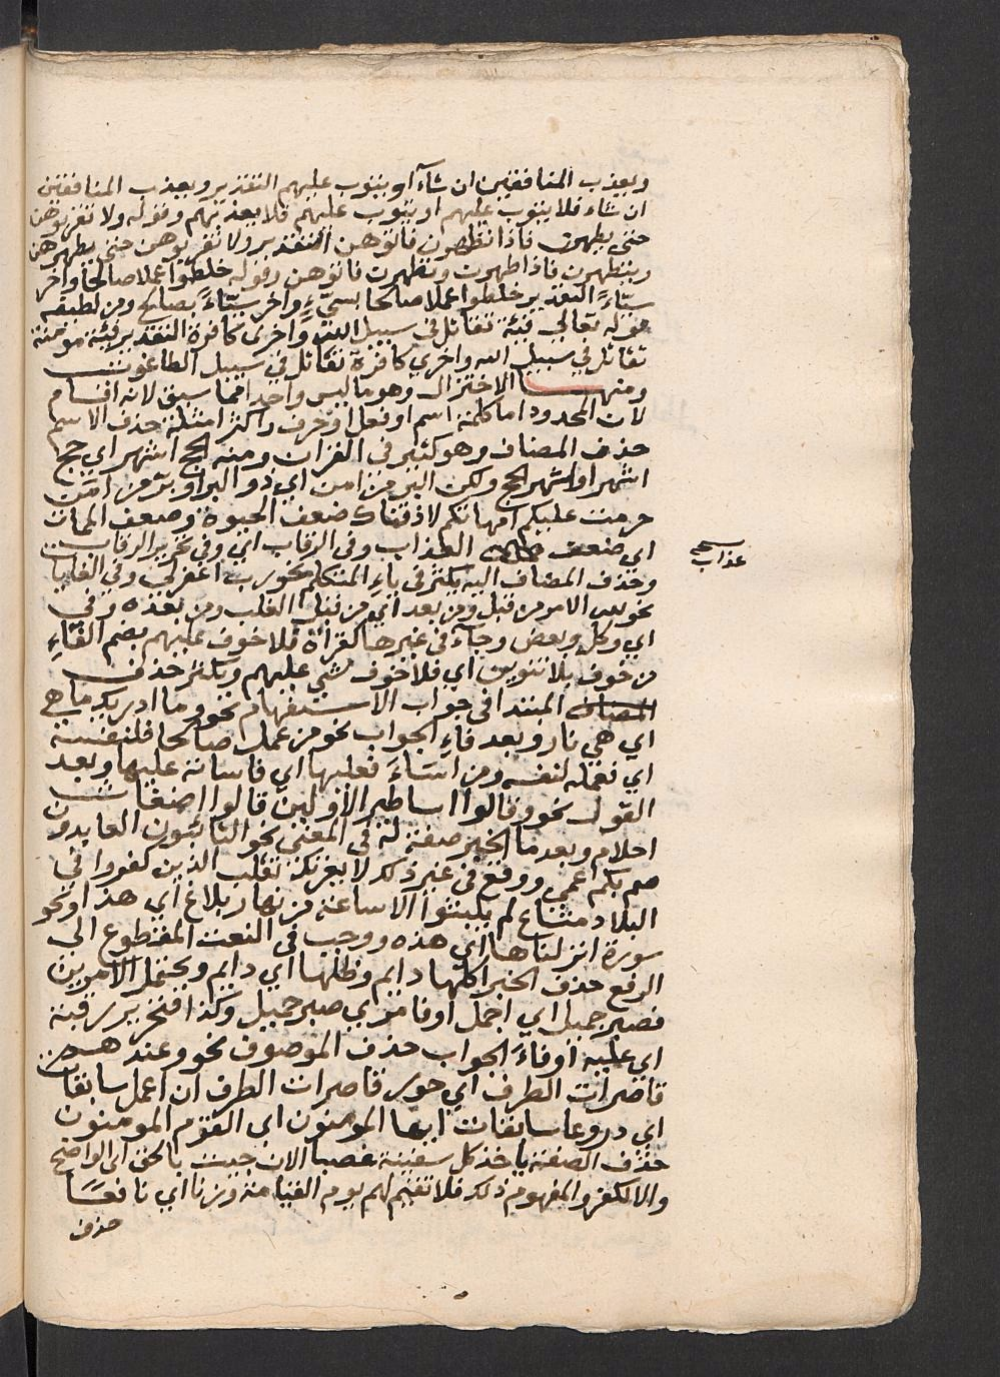 ويعذب المنافقين ان شآء او يتوب عليهم التقدير ويعذب المنافقين
ان شاء فلا يتوب عليهم او يتوب عليهم فلا يعذبهم وقوله ولا تقربوهن
حتى يطهرن فاذا تطهرن فاتوهن التقدير ولا تقربوهن حتى يطهرن
ويتطهرن فاذا طهرن وتطهرن فاتوهن وقوله خلطوا عملا صالحا واخر
سيئا التقدير خلطوا عملا صالحا بسيء واخر سيئا بصالح ومن لطيفه
قوله تعالى فيئة تقاتل في سبيل الله واخرى كافرة التقدير فيئة مومنة
تقاتل في سبيل الله واخرى كافرة تقاتل في سبيل الطاغوت
ومنها الاختزال وهو ما ليس واحدا مما سبق لانه اقسام
لان المحذوف اما كلمة اسم او فعل او حرف او اكثر امثلة حذف الاسم
حذف المضاف وهو كثير في القران ومنه الحج اشهر اي حج
اشهر او اشهر الحج ولكن البر من امن اي ذو البر او بر من امن
حرمت عليكم امهاتكم لاذقناك ضعف الحيوة وضعف الممات
اي ضعف العذاب وفي الرقاب اي وفي تحرير الرقاب
عذاب صح
وحذف المضاف اليه يكثر في ياء المتكلم نحو رب اغفر لي وفي الغايات
نحو لله الامر من قبل ومن بعد اي من قبل الغلب ومن بعده وفي
اي وكل وبعض وجآء في غيرها كقراة فلا خوف عليهم بضم الفاء
من خوف بلا تنوين اي فلا خوف شي عليهم ويكثر حذف
المبتدا في جواب الاستفهام نحو وما ادريك ما هي
اي هي نار وبعد فاء الجواب نحو من عمل صالحا فلنفسه
اي فعمله لنفسه ومن اساء فعليها اي فاساته عليها وبعد
القول نحو وقالوا اساطير الاولين قالوا اضغاث
احلام وبعد ما الخبر صفة له في المعنى نحو التائبون العابدون
صم بكم عمي ووقع في غير ذلك لا يغرنك تقلب الذين كفروا في
البلاد متاع لم يلبثوا الا ساعة من نهار بلاغ اي هذا ونحو
سورة انزلناها اي هذه ووجب في النعت المقطوع الى
الرفع حذف الخبر اكلها دايم وظلها اي دايم ويحتمل الامرين
فصبر جميل اي اجمل او فامري صبر جميل وكذا فتحرير رقبة
اي عليه او فاء الجواب حذف الموصوف نحو وعندهم
قاصرات الطرف اي حور قاصرات الطرف ان اعمل سابغات
اي دروعا سابغات ايها المومنون اي القوم المومنون
حذف الصفة ياخذ كل سفينة غصبا الان جيت بالحق اي الواضح
والا لكفروا بمفهوم ذلك فلا نقيم لهم يوم القيامة وزنا اي نافعا
حذف